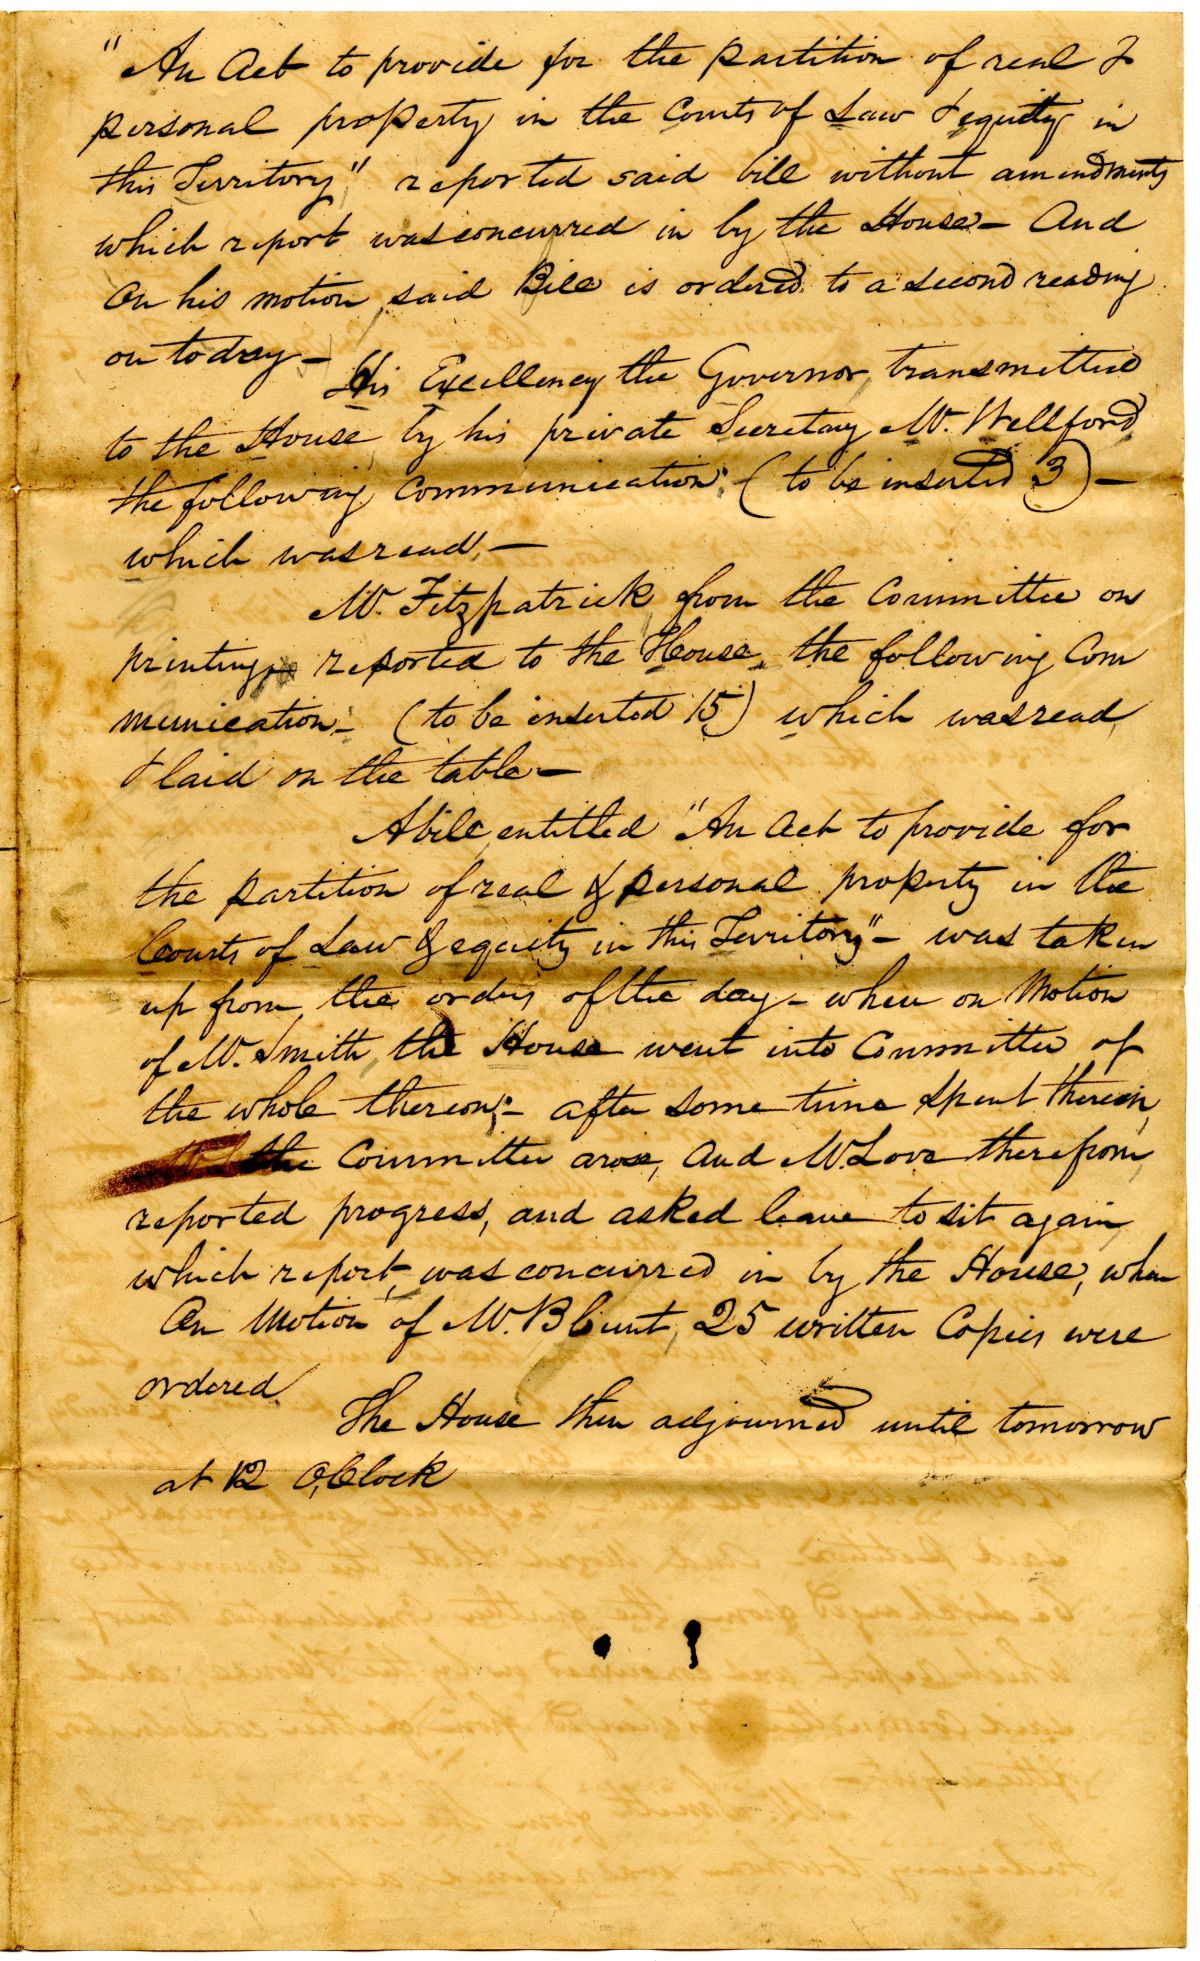 "An Act to provide for the partition of real &
personal property in the Courts of Law & equity in
this Territory," reported said bill without amendments
which report was concurred in by the House - And
On his motion said Bill is ordered to a second reading
on today -
His Excellency the Governor, transmitted
to the House, by his private Secretary Mr. Wellford,
the following communication: (to be inserted 3) -
which was read. -
Mr. Fitzpatrick from the Committee on
printing, reported to the House, the following Com
munication - (to be inserted 15) which was read
& laid on the table -
A bill entitled "An Act to provide for
the partition of real & personal property in the
Courts of Law & equity in this Territory" - was taken
up from the orders of the day - when on Motion
of Mr. Smith, the House went into Committee of
the whole thereon; - after some time spent therein,
the Committee arose, and Mr. Love therefrom,
reported progress, and asked leave to sit again
which report, was concurred in by the House, when
On Motion of Mr. Blount, 25 written Copies were
ordered
The House then adjourned until tomorrow
at 12 O,Clock